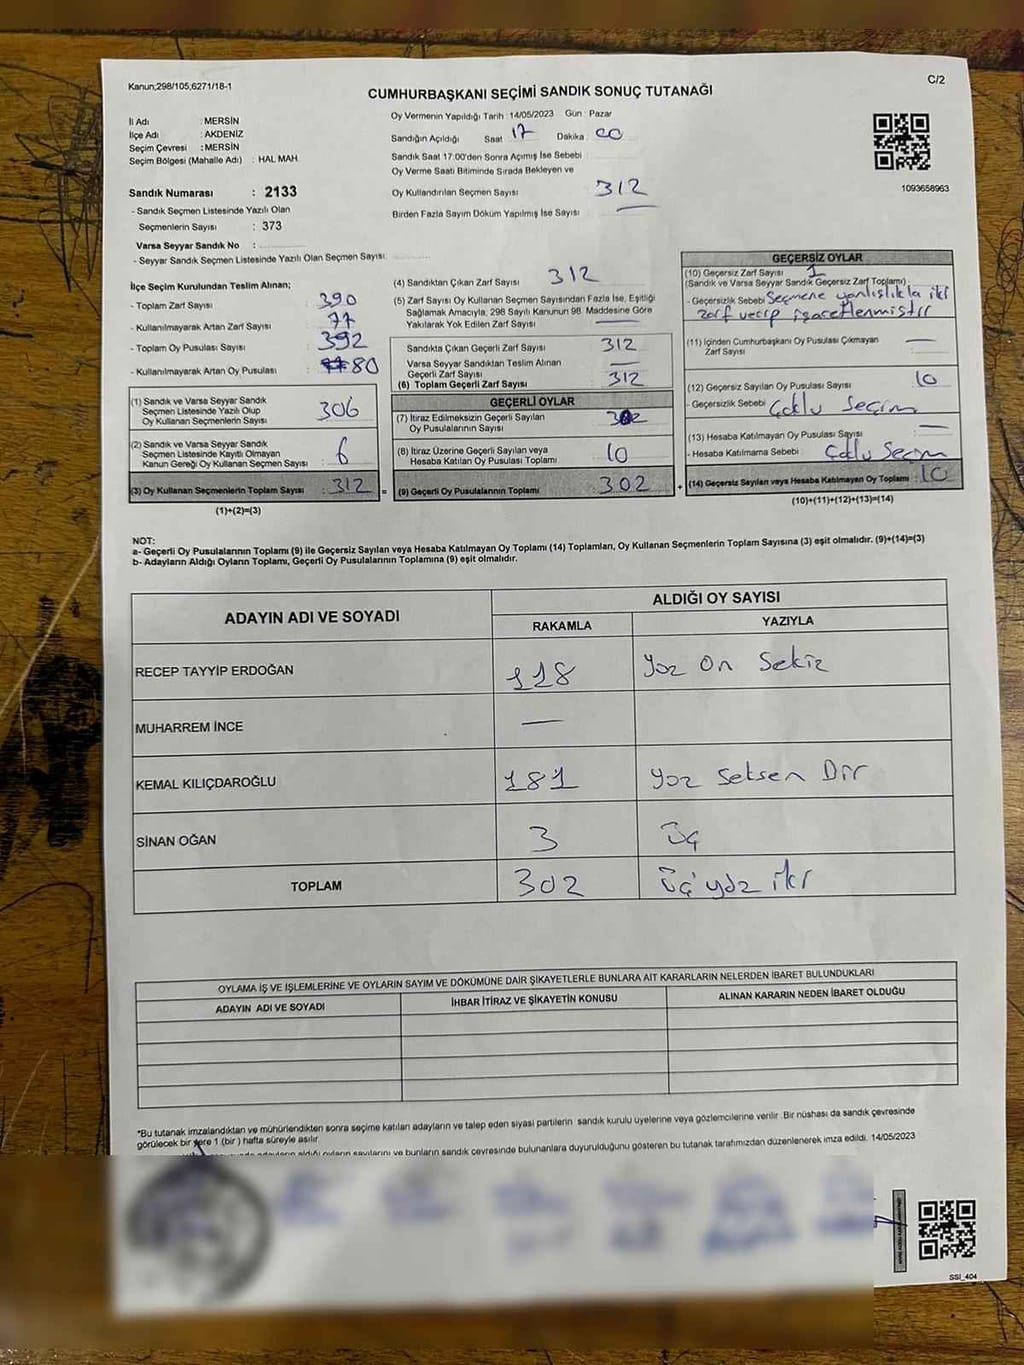 Kanun;298/105,6271/18-1
C/2
CUMHURBAŞKANI SEÇİMİ SANDIK SONUÇ TUTANAĞI
İl Adı : MERSİN
İlçe Adı : AKDENİZ
Seçim Çevresi : MERSİN
Seçim Bölgesi (Mahalle Adı) : HAL MAH
Sandık Numarası : 2133
- Sandık Seçmen Listesinde Yazılı Olan
Seçmenlerin Sayısı : 373
Varsa Seyyar Sandık No :
- Seyyar Sandık Seçmen Listesinde Yazılı Olan Seçmen Sayısı:
Oy Vermenin Yapıldığı Tarih 14/05/2023 Gün : Pazar
Sandığın Açıldığı Saat 17 Dakika 00
Sandık Saat 17:00'den Sonra Açımış İse Sebebi
Oy Verme Saati Bitiminde Sırada Bekleyen ve
Oy Kullandırılan Seçmen Sayısı 312
Birden Fazla Sayım Döküm Yapılmış İse Sayısı
1093658963
İlçe Seçim Kurulundan Teslim Alınan;
- Toplam Zarf Sayısı : 390
- Kullanılmayarak Artan Zarf Sayısı : 77
- Toplam Oy Pusulası Sayısı : 392
- Kullanılmayarak Artan Oy Pusulası : 80
(1) Sandık ve Varsa Seyyar Sandık
Seçmen Listesinde Yazılı Olup
Oy Kullanan Seçmenlerin Sayısı : 306
(2) Sandık ve Varsa Seyyar Sandık
Seçmen Listesinde Kayıtlı Olmayan
Kanun Gereği Oy Kullanan Seçmen Sayısı : 6
(3) Oy Kullanan Seçmenlerin Toplam Sayısı : 312 =
(1)+(2)=(3)
(4) Sandıktan Çıkan Zarf Sayısı 312
(5) Zarf Sayısı Oy Kullanan Seçmen Sayısından Fazla İse, Eşitliği
Sağlamak Amacıyla, 298 Sayılı Kanunun 98. Maddesine Göre
Yakılarak Yok Edilen Zarf Sayısı
Sandıkta Çıkan Geçerli Zarf Sayısı 312
Varsa Seyyar Sandıktan Teslim Alınan
Geçerli Zarf Sayısı —
(6) Toplam Geçerli Zarf Sayısı 312
GEÇERLİ OYLAR
(7) İtiraz Edilmeksizin Geçerli Sayılan
Oy Pusulalarının Sayısı 302
(8) İtiraz Üzerine Geçerli Sayılan veya
Hesaba Katılan Oy Pusulası Toplamı 10
(9) Geçerli Oy Pusulalarının Toplamı : 302 +
GEÇERSİZ OYLAR
(10) Geçersiz Zarf Sayısı : 1
(Sandık ve Varsa Seyyar Sandık Geçersiz Zarf Toplamı)
- Geçersizlik Sebebi Seçmene yanlışlıkla iki
zarf verip işaretlenmiştir
(11) İçinden Cumhurbaşkanı Oy Pusulası Çıkmayan
Zarf Sayısı —
(12) Geçersiz Sayılan Oy Pusulası Sayısı 10
- Geçersizlik Sebebi Çoklu Seçim
(13) Hesaba Katılmayan Oy Pusulası Sayısı —
- Hesaba Katılmama Sebebi : Çoklu Seçim
(14) Geçersiz Sayılan veya Hesaba Katılmayan Oy Toplamı : 10
(10)+(11)+(12)+(13)=(14)
NOT:
a- Geçerli Oy Pusulalarının Toplamı (9) ile Geçersiz Sayılan veya Hesaba Katılmayan Oy Toplamı (14) Toplamları, Oy Kullanan Seçmenlerin Toplam Sayısına (3) eşit olmalıdır. (9)+(14)=(3)
b- Adayların Aldığı Oyların Toplamı, Geçerli Oy Pusulalarının Toplamına (9) eşit olmalıdır.
ADAYIN ADI VE SOYADI
ALDIĞI OY SAYISI
RAKAMLA YAZIYLA
RECEP TAYYİP ERDOĞAN 118 Yüz On Sekiz
MUHARREM İNCE —
KEMAL KILIÇDAROĞLU 181 Yüz Seksen Bir
SİNAN OĞAN 3 üç
TOPLAM 302 üç yüz iki
OYLAMA İŞ VE İŞLEMLERİNE VE OYLARIN SAYIM VE DÖKÜMÜNE DAİR ŞİKAYETLERLE BUNLARA AİT KARARLARIN NELERDEN İBARET BULUNDUKLARI
ADAYIN ADI VE SOYADI İHBAR İTİRAZ VE ŞİKAYETİN KONUSU ALINAN KARARIN NEDEN İBARET OLDUĞU
*Bu tutanak imzalandıktan ve mühürlendikten sonra seçime katılan adayların ve talep eden siyasi partilerin sandık kurulu üyelerine veya gözlemcilerine verilir .Bir nüshası da sandık çevresinde
görülecek bir yere 1 (bir ) hafta süreyle asılır.
adayların aldığı oyların sayılarını ve bunların sandık çevresinde bulunanlara duyurulduğunu gösteren bu tutanak tarafımızdan düzenlenerek imza edildi. 14/05/2023
SSİ_404